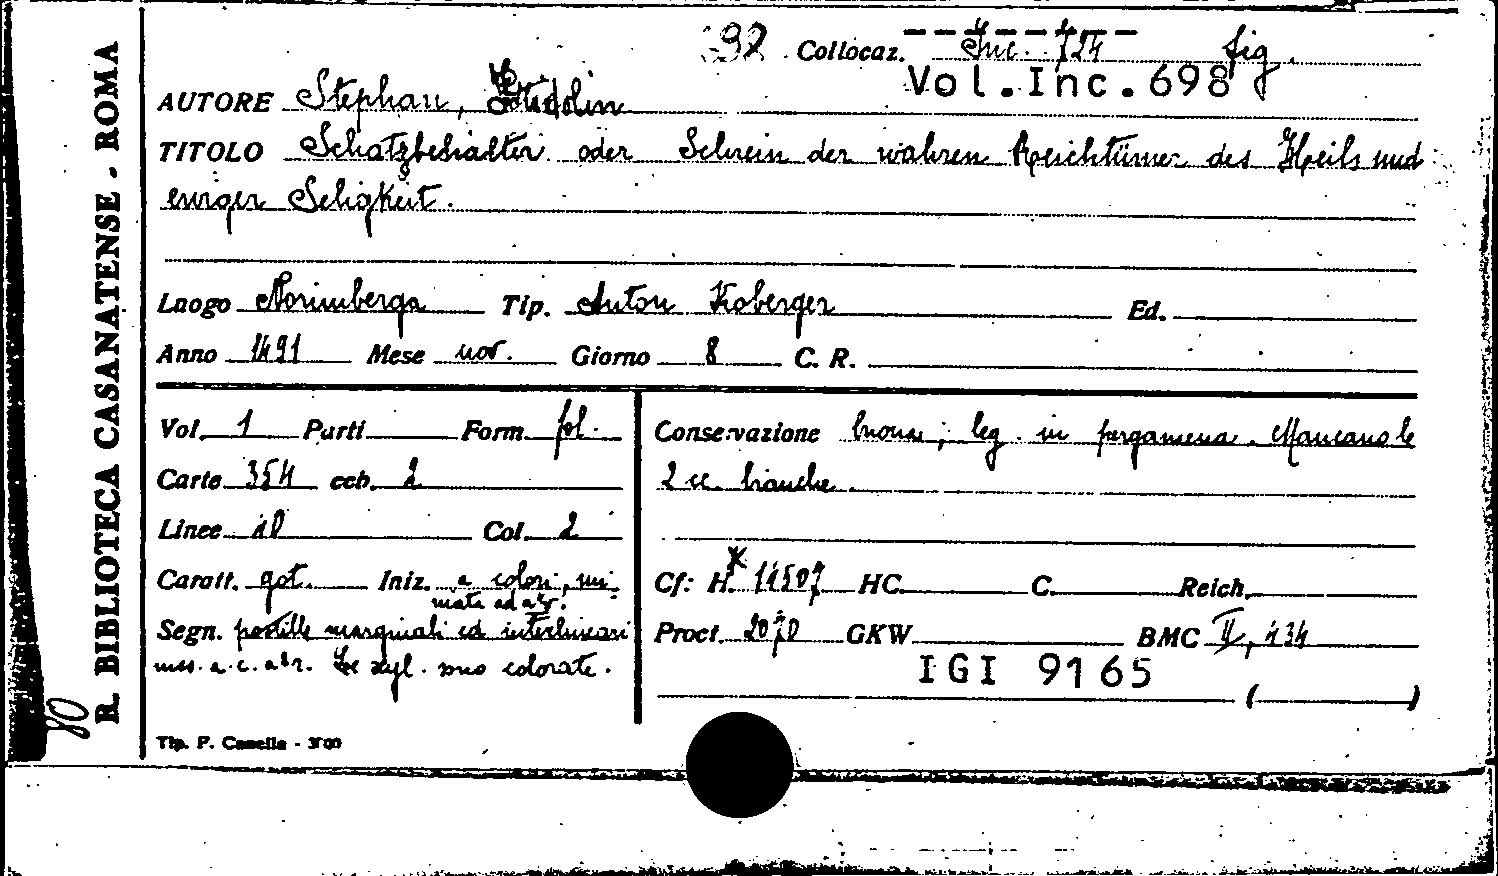 92 Collocaz. Inc. 724 fig.
Vol.Inc.698
AUTORE Stephan, Fridolin
TITOLO Schatzbehalter oder Schrein der wahren Reichtümer des Heils und
ewiger Seligkeit.
Luogo Norimberga Tip. Anton Koberger Ed.
Anno 1491 Mese nov. Giorno 8 C. R.
Vol. 1 Parti Form. fol.
Carte 354 ccb. 2
Linee 40 Col. 2
Caratt. got. Iniz. a colori, mi-
niata ad a2r.
Segn. postille marginali ed interlineari
mss. a c. a2r. Le xyl. sono colorate.
Conservazione buona; leg. in pergamena. Mancano le
2 cc. bianche.
Cf: H. x 14507 HC. C. Reich.
Proct. 2070 GKW BMC II, 434
IGI 9165
( )
R. BIBLIOTECA CASANATENSE - ROMA
80
Tip. F. Canella - 3700